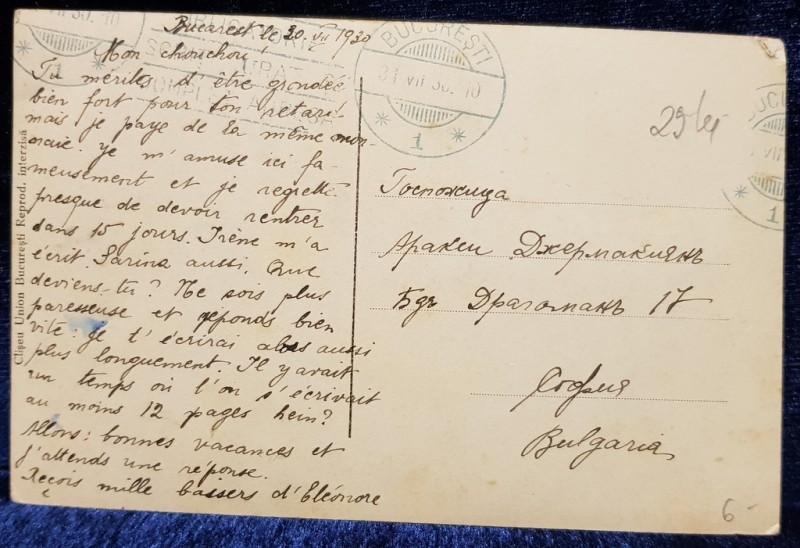 Bucarest le 30. VII 1930
Mon chouchou!
Tu mérites d'être grondée
bien fort pour ton retard
mais je paye de la même mon-
naie. Je m'amuse ici fa-
meusement et je regrette
presque de devoir rentrer
dans 15 jours. Irène m'a
écrit. Sarina aussi. Que
deviens-tu? Ne sois plus
paresseuse et réponds bien
vite. Je t'écrirai alors aussi
plus longuement. Il y avait
un temps où l'on s'écrivait
au moins 12 pages hein?
Allons: bonnes vacances et
j'attends une réponse.
Reçois mille baisers d'Eléonore
Clișeu Union București Reprod. interzisă
BUCUREȘTI
31 VII 30. 10
1
29 lei
Госпожица
Аракси Джермакиянъ
Бдъ Драгоманъ 17
София
Bulgaria
6-